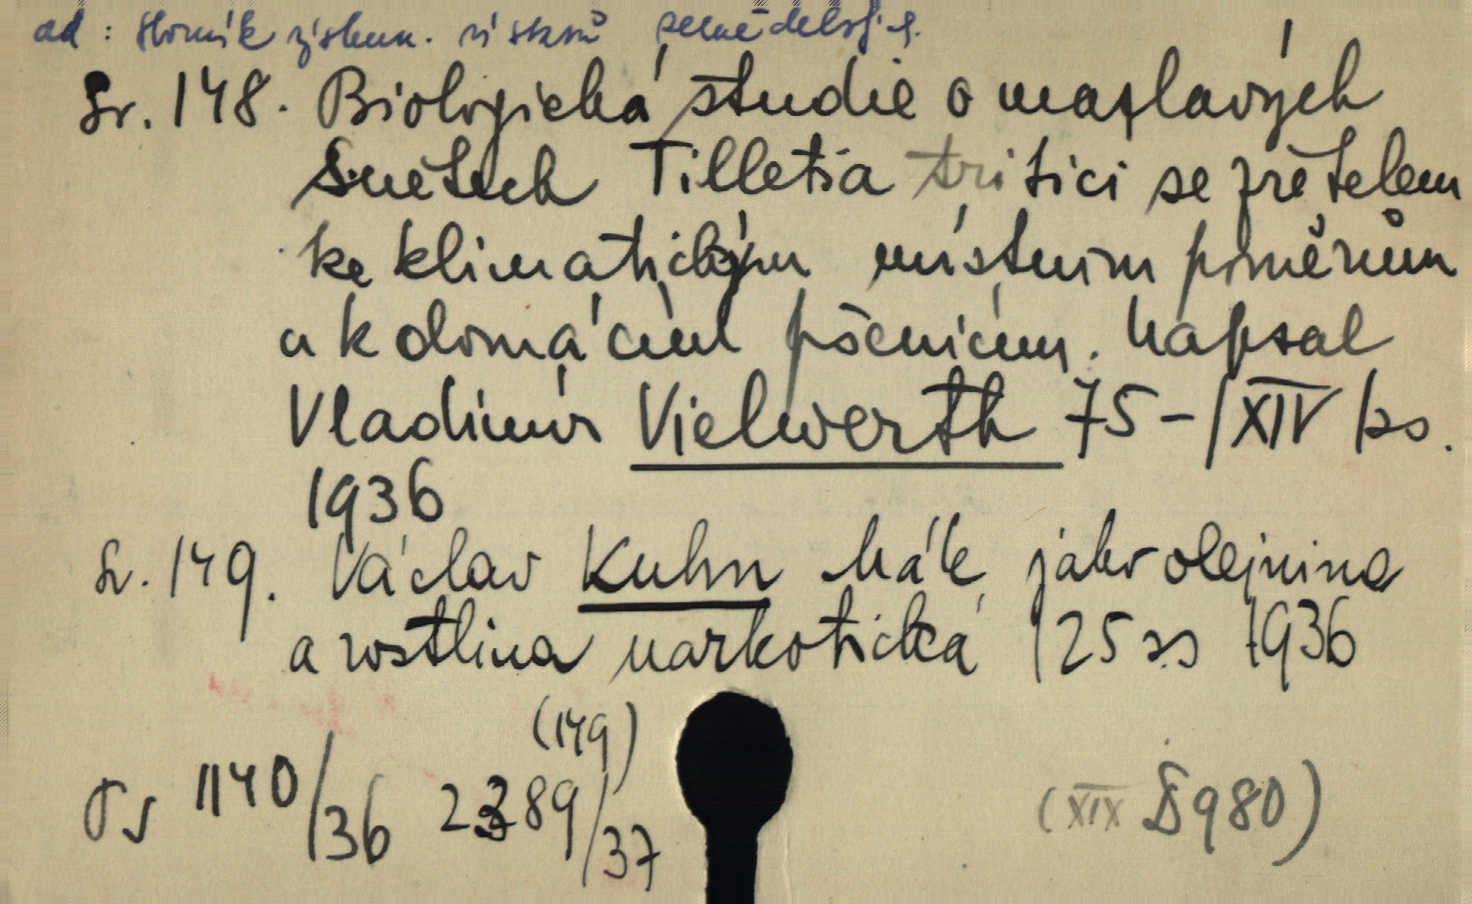 ad: Sborník výzkum. ústavů zemědělských.
Sv. 148. Biologická studie o mazlavých
snětech Tilletia tritici se zřetelem
ke klimatickým místním poměrům
a k domácím pšenicím. Napsal
Vladimír Vielwerth 75-/XIV/ss.
1936
Sv. 149. Václav Kuhn Mák jako olejnina
a rostlina narkotická 125 ss 1936
(149)
1140/36 2389/37
(XIX § 980)